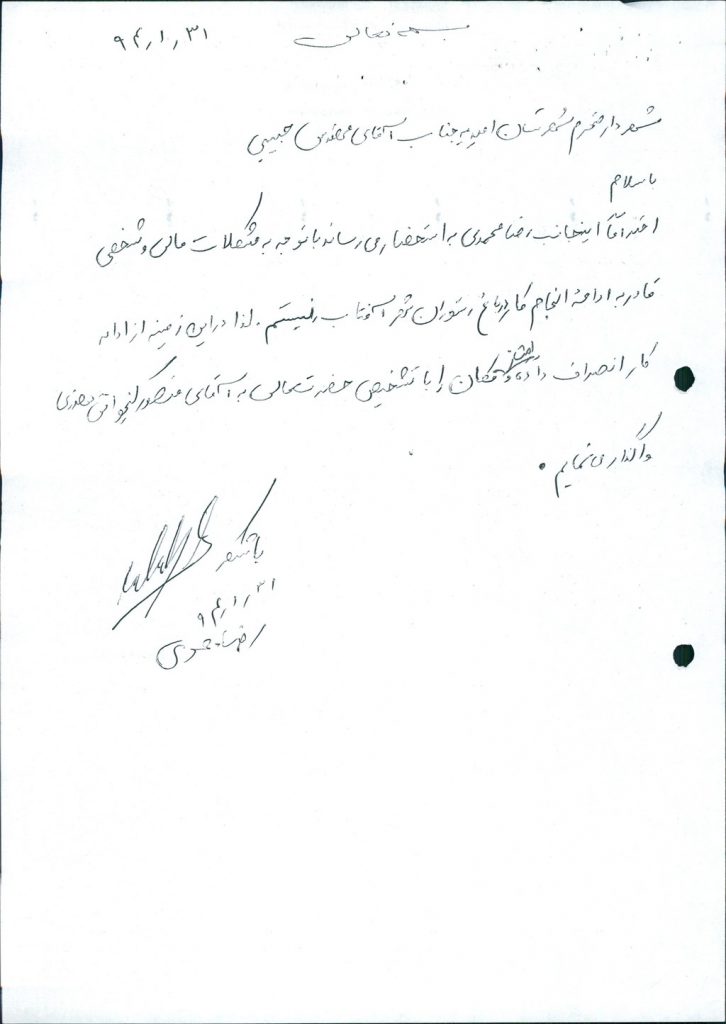 بسمه تعالی
۹۴/۱/۳۱
شهردار محترم شهرستان امیدیه جناب آقای مهندس حبیبی
با سلام
احتراماً اینجانب رضا محمدی به استحضار می رساند با توجه به مشکلات مالی و شخصی
قادر به ادامه انجام کار در باغ رستوران شهر آفتاب نیستم. لذا در این زمینه از ادامه
کار انصراف داده و امتیاز مکان را با تشخیص حضرتعالی به آقای منصور
واگذار می نمایم.
با تشکر
۹۴/۱/۳۱
رضا محمدی